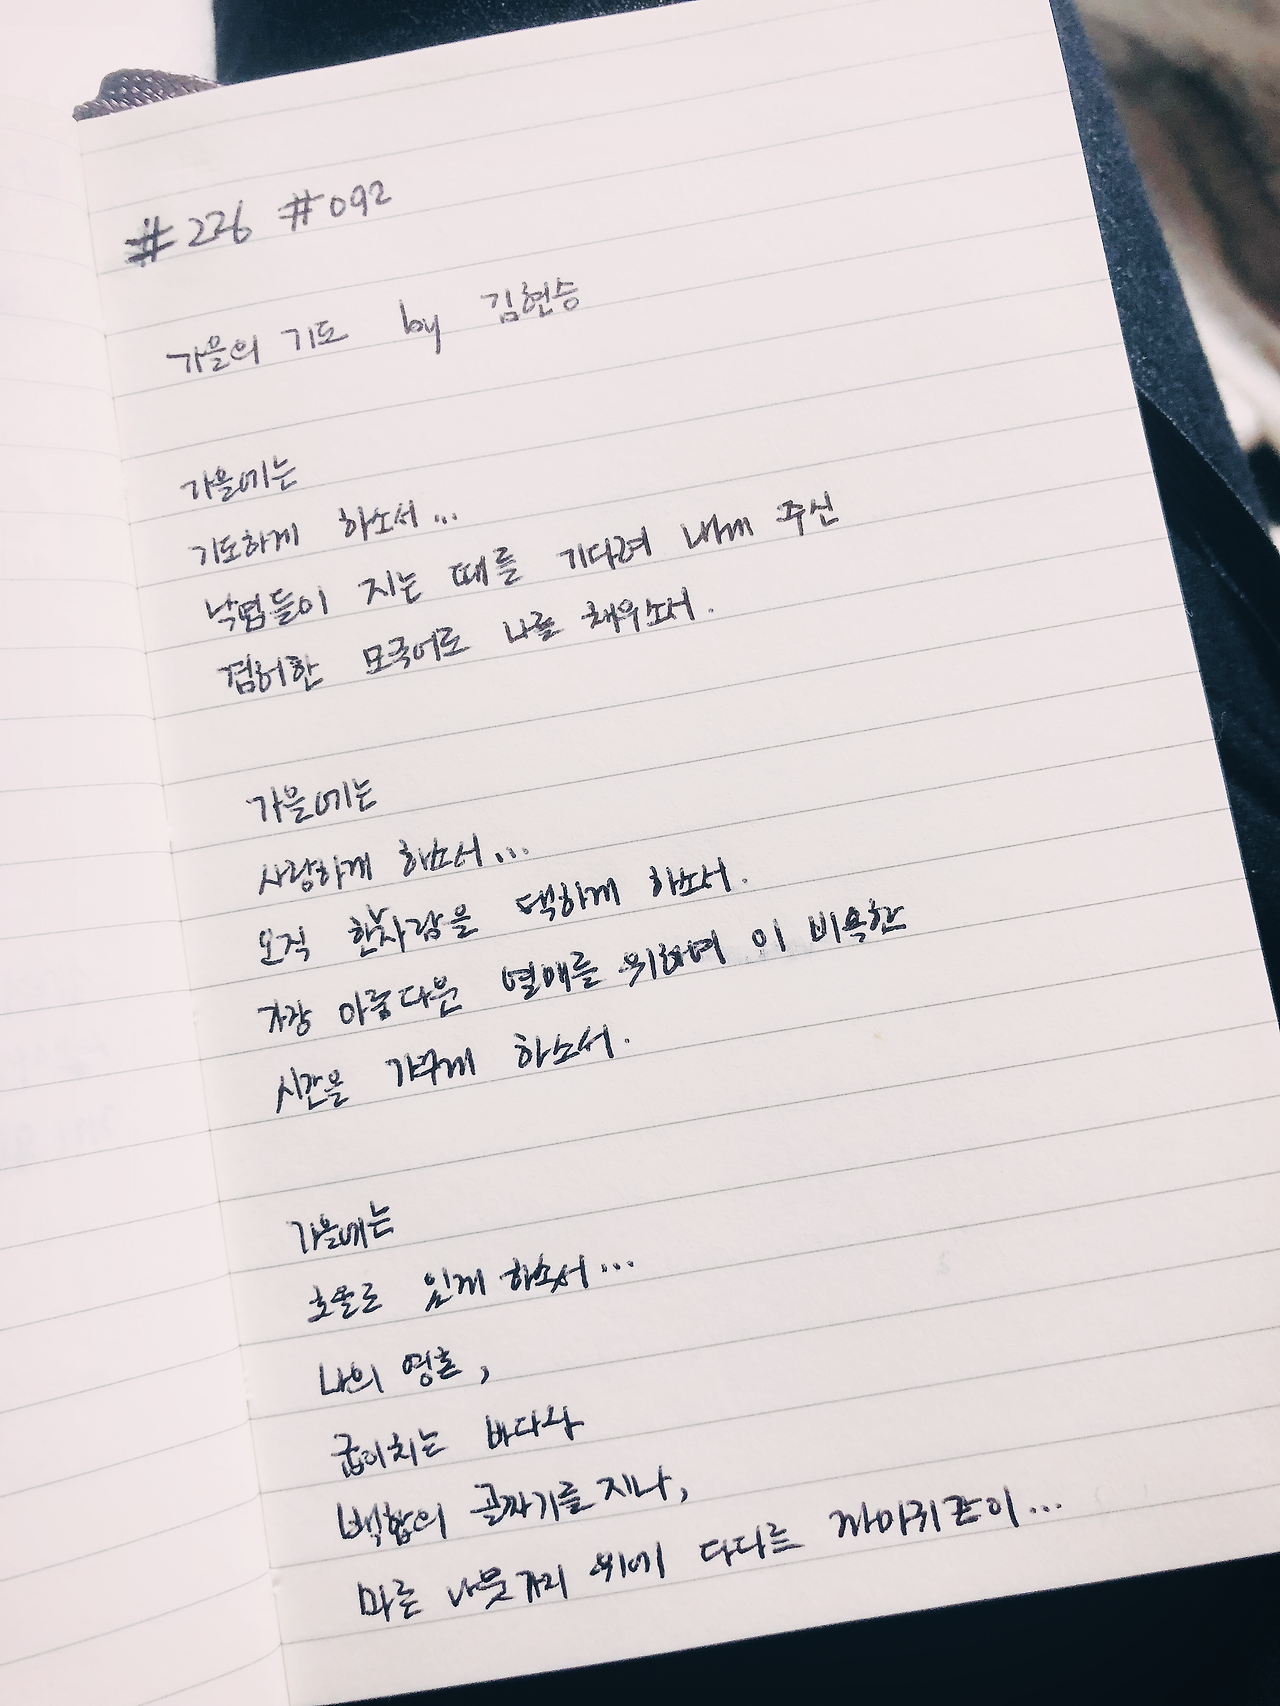 #226 #092
가을의 기도 by 김현승
가을에는
기도하게 하소서...
낙엽들이 지는 때를 기다려 내게 주신
겸허한 모국어로 나를 채우소서.
가을에는
사랑하게 하소서...
오직 한사람을 택하게 하소서.
가장 아름다운 열매를 위하여 이 비옥한
시간을 가꾸게 하소서.
가을에는
호올로 있게 하소서...
나의 영혼,
굽이치는 바다와
백합의 골짜기를 지나,
마른 나뭇가지 위에 다다른 까마귀같이...